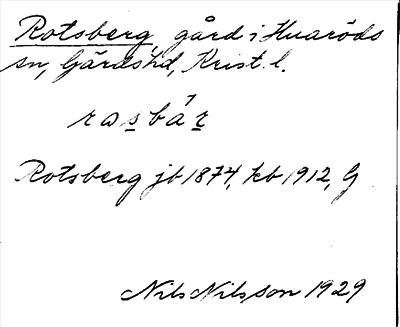 Rotsberg gård i Huaröds
sn, Gärds hd, Krist. l.
rasbár
Rotsberg jb 1874, kb 1912, G
Nils Nilsson 1929